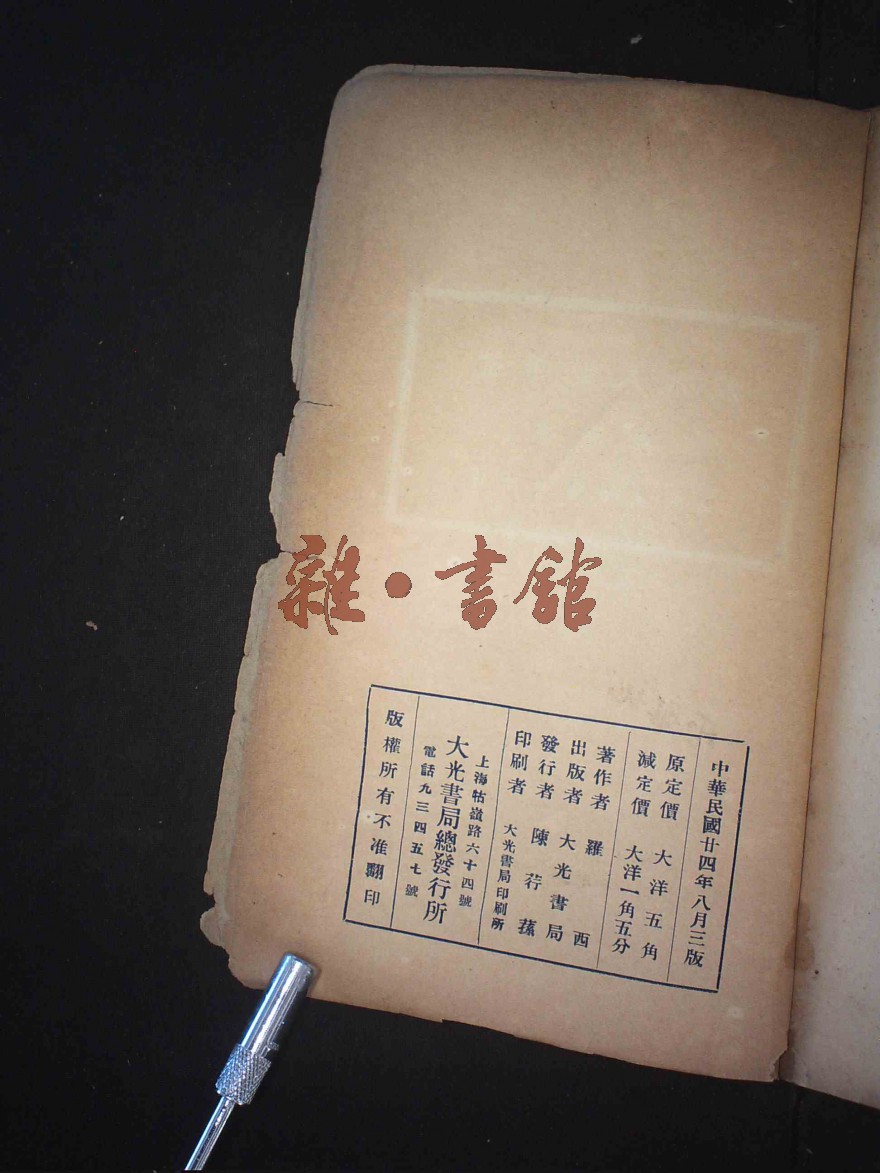 雜·書舘
中華民國廿四年八月三版
原定價 大洋五角
減定價 大洋一角五分
著作者 羅西
出版者 大光書局
發行者 陳荇蓀
印刷者 大光書局印刷所
上海牯嶺路六十四號
大光書局總發行所
電話九三四五七號
版權所有不准翻印